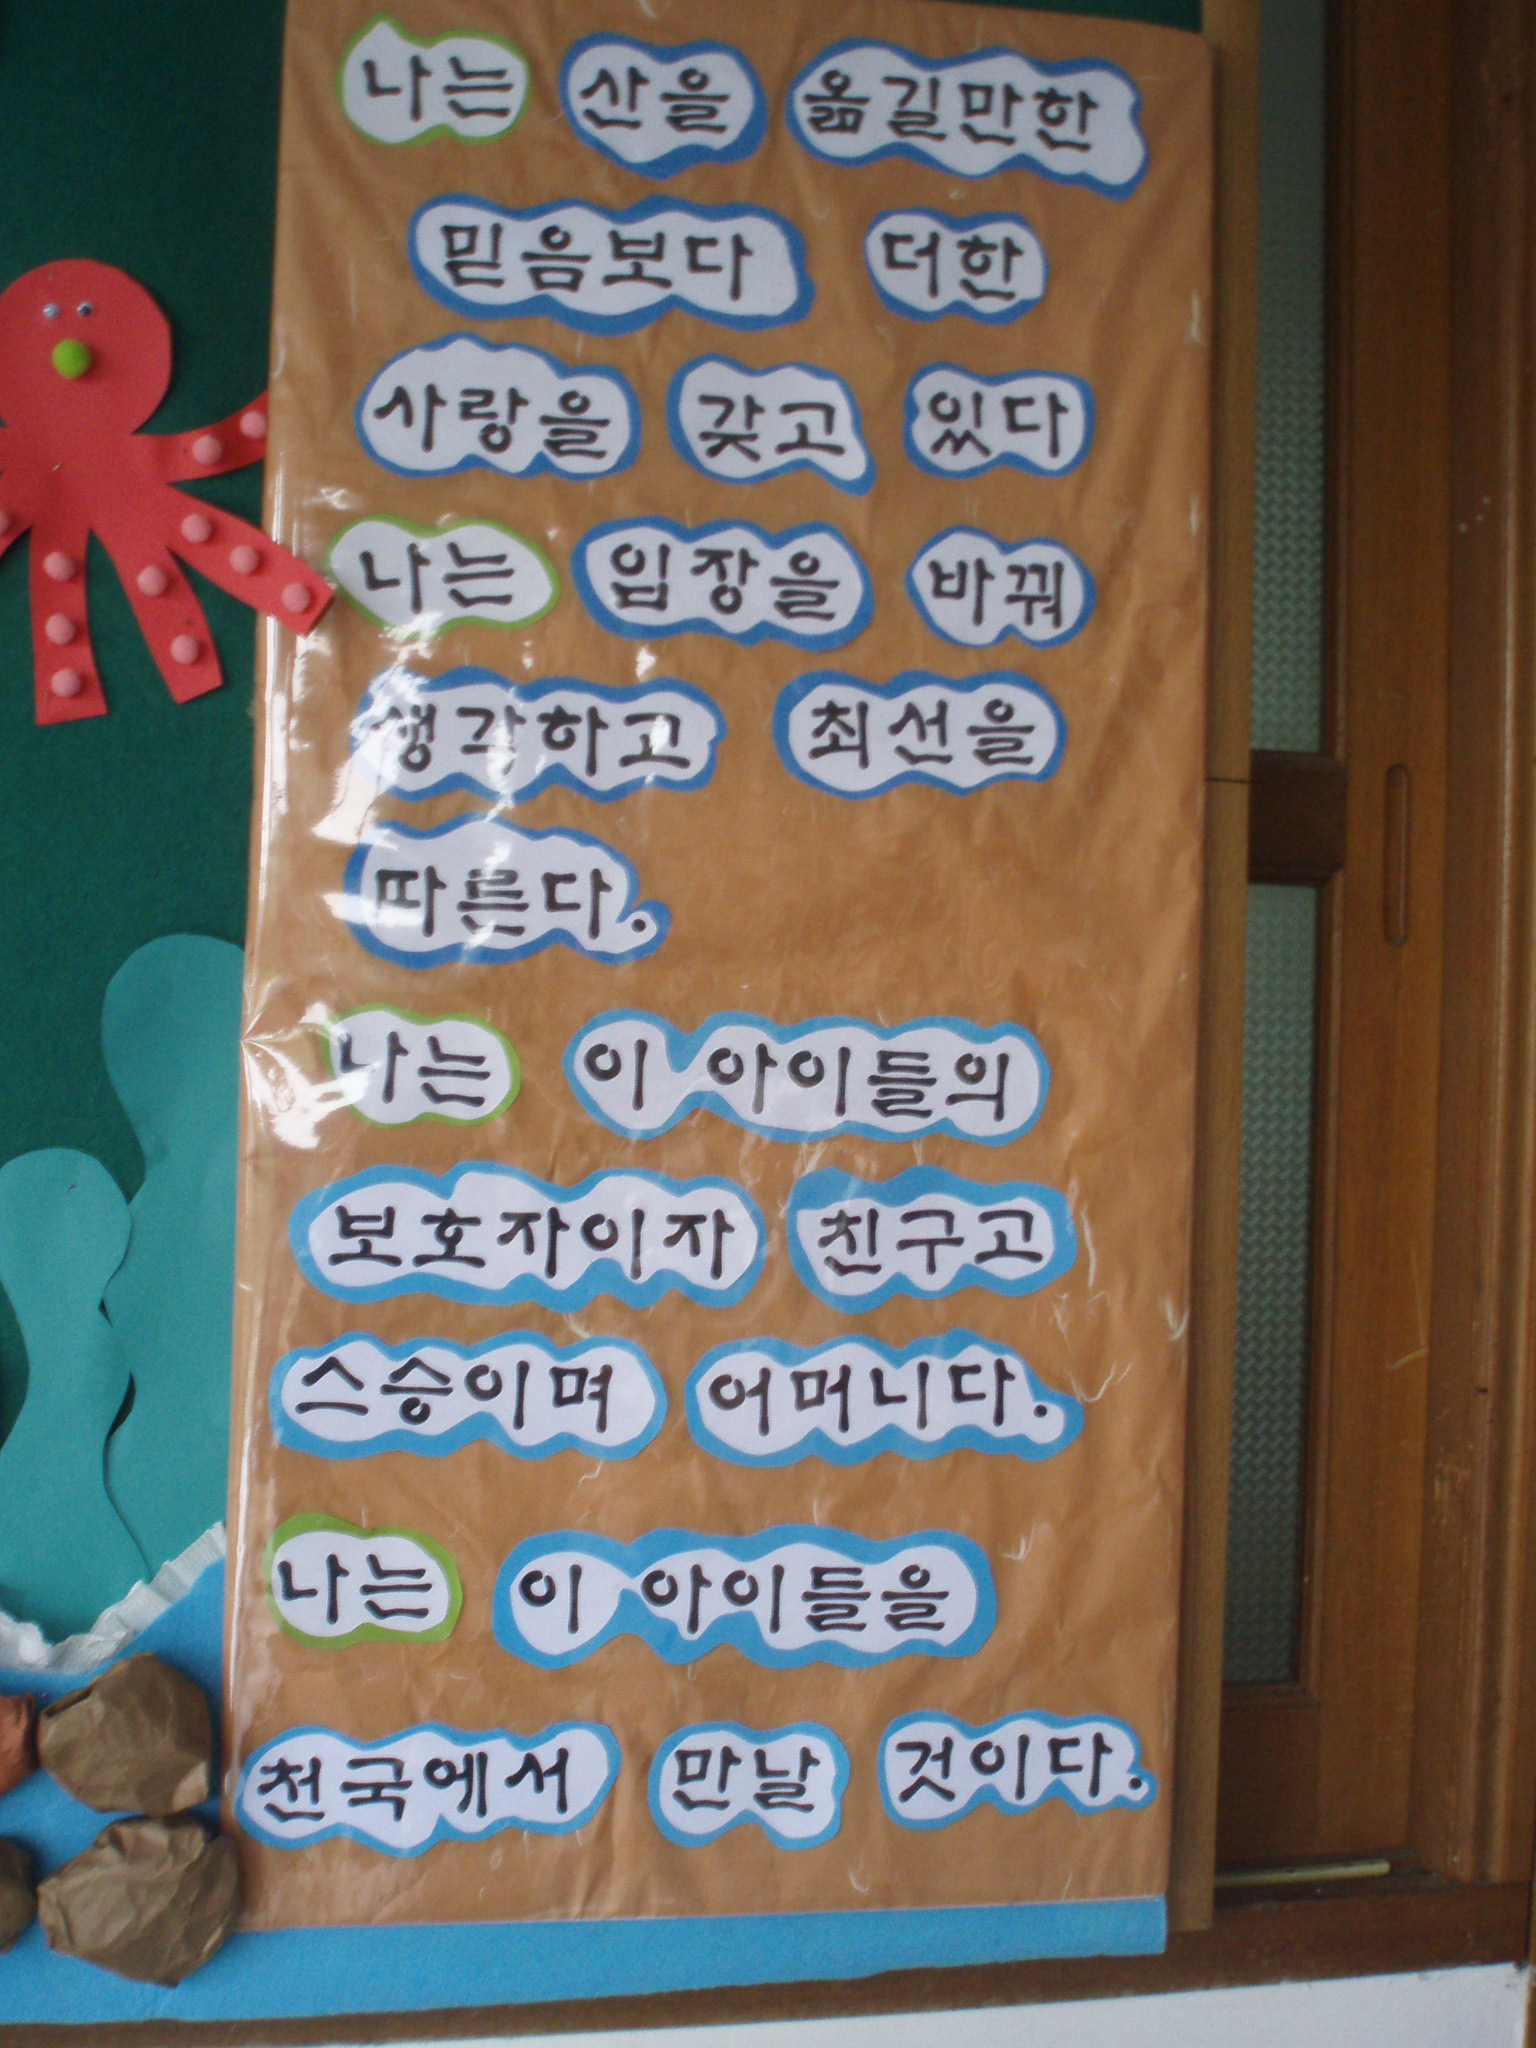 나는 산을 옮길만한
믿음보다 더한
사랑을 갖고 있다
나는 입장을 바꿔
생각하고 최선을
따른다.
나는 이 아이들의
보호자이자 친구고
스승이며 어머니다.
나는 이 아이들을
천국에서 만날 것이다.